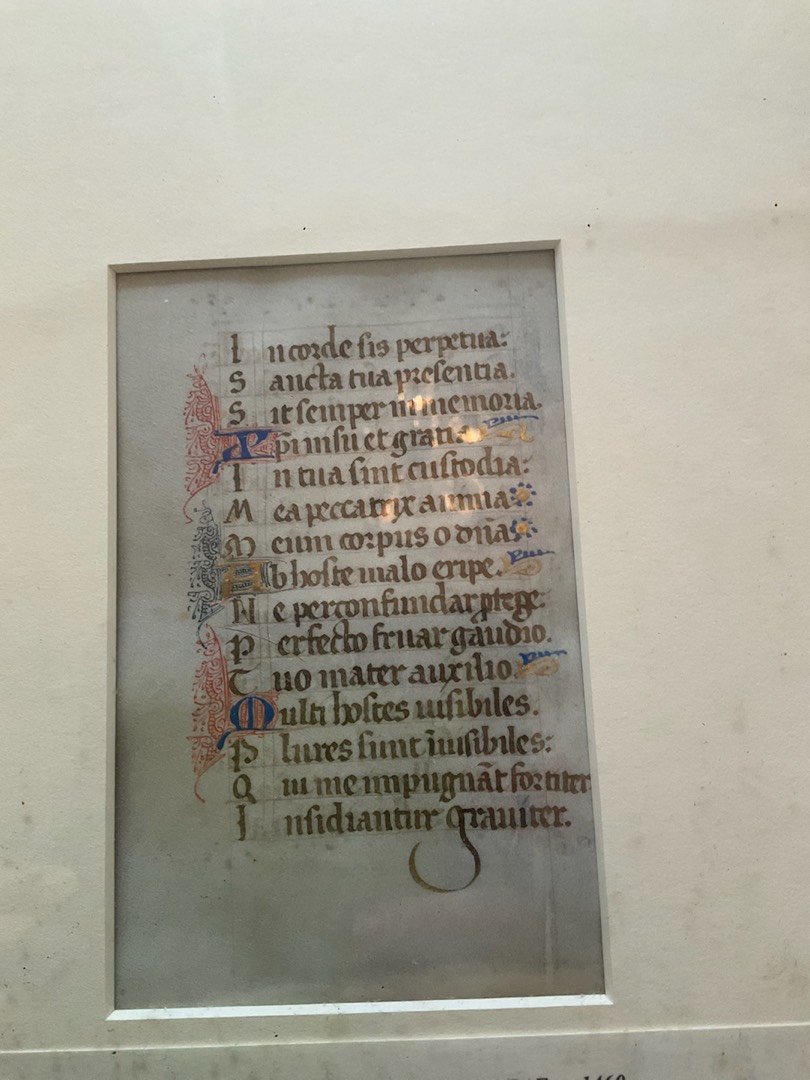 In corde sis perpetua:
Sancta tua presentia.
Sit semper in memoria.
Xpi iusu et gratia
In tua sint custodia:
Mea peccatrix anima
Meum corpus o dña
Ab hoste malo eripe.
Ne per confundar ꝓtege
Perfecto fruar gaudio.
Tuo mater auxilio.
Multi hostes uisibiles.
Plures sunt īuisibiles:
Qui me impugnāt fortiter
Insidiantur grauiter.
1460